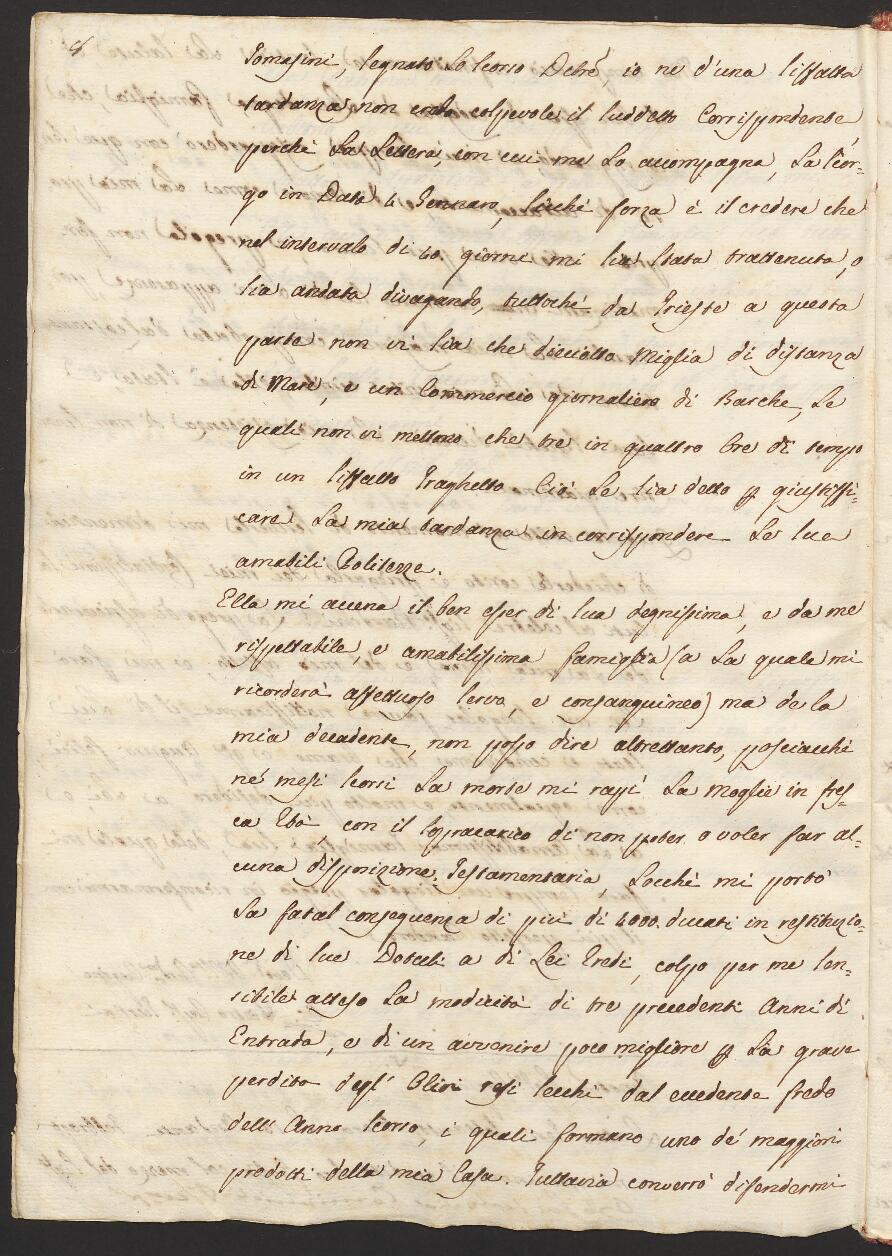 8
Tomasini, segnato lo scorso Xbre, io ne d'una siffatta
tardanza non credo colpevole il suddetto Corrispondente,
perchè la Lettera, con cui me lo accompagna, la scor-
go in Data 4 Gennaro, sicchè forza è il credere che
nel intervalo di 40. giorni mi sia stata trattenuta, o
sia andata divagando, tuttochè da Trieste a questa
parte non vi sia che dieciotto Miglia di distanza
di Mare, e un Commercio giornaliero di Barche, le
quali non vi mettono che tre in quattro Ore di tempo
in un siffatto Traghetto. Ciò le sia detto p giustiffi-
care la mia tardanza in corrispondere le sue
amabili Politezze.
Ella mi accena il ben esser di sua degnissima, e da me
rispettabile, e amabilissima famiglia (a la quale mi
ricorderà affettuoso servo, e consanguineo) ma de la
mia decadente, non posso dire altrettanto, posciacchè
né mesi scorsi la morte mi rapì la Moglie in fres-
ca Età, con il sopracarico di non poter o voler far al-
cuna disposizione Testamentaria, locchè mi portò
la fatal conseguenza di più di 4000. ducati in restituzio-
ne di sue Dotali a di Lei Eredi, colpo per me sen-
sibile atteso la modicità di tre precedenti Anni di
Entrada, e di un avvenire poco migliore p la grave
perdita degl' Olivi resi secchi dal eccedente fredo
dell' Anno scorso, i quali formano uno de' maggiori
prodotti della mia Casa. Tuttavia converrò difendermi